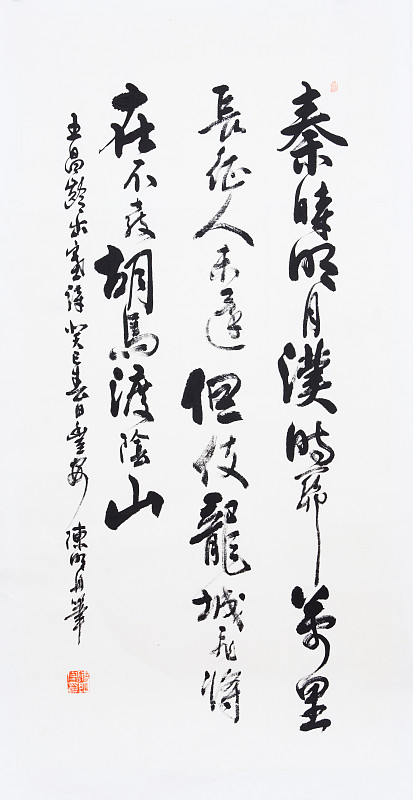 秦時明月漢時關萬里
長征人未還但使龍城飛將
在不教胡馬渡陰山
王昌齡出塞詩癸巳春日陳明筆